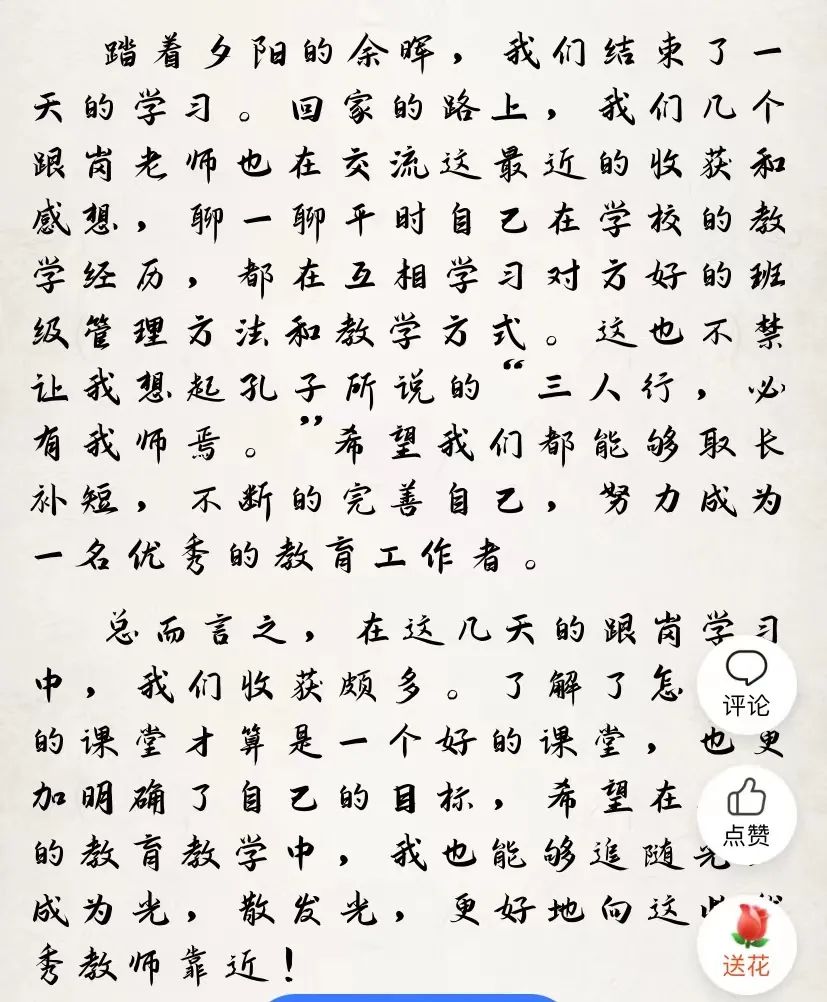 踏着夕阳的余晖，我们结束了一
天的学习。回家的路上，我们几个
跟岗老师也在交流这最近的收获和
感想，聊一聊平时自己在学校的教
学经历，都在互相学习对方好的班
级管理方法和教学方式。这也不禁
让我想起孔子所说的“三人行，必
有我师焉。”希望我们都能够取长
补短，不断的完善自己，努力成为
一名优秀的教育工作者。
总而言之，在这几天的跟岗学习
中，我们收获颇多。了解了怎
的课堂才算是一个好的课堂，也更
加明确了自己的目标，希望在
的教育教学中，我也能够追随光
成为光，散发光，更好地向这
秀教师靠近！
评论
点赞
送花